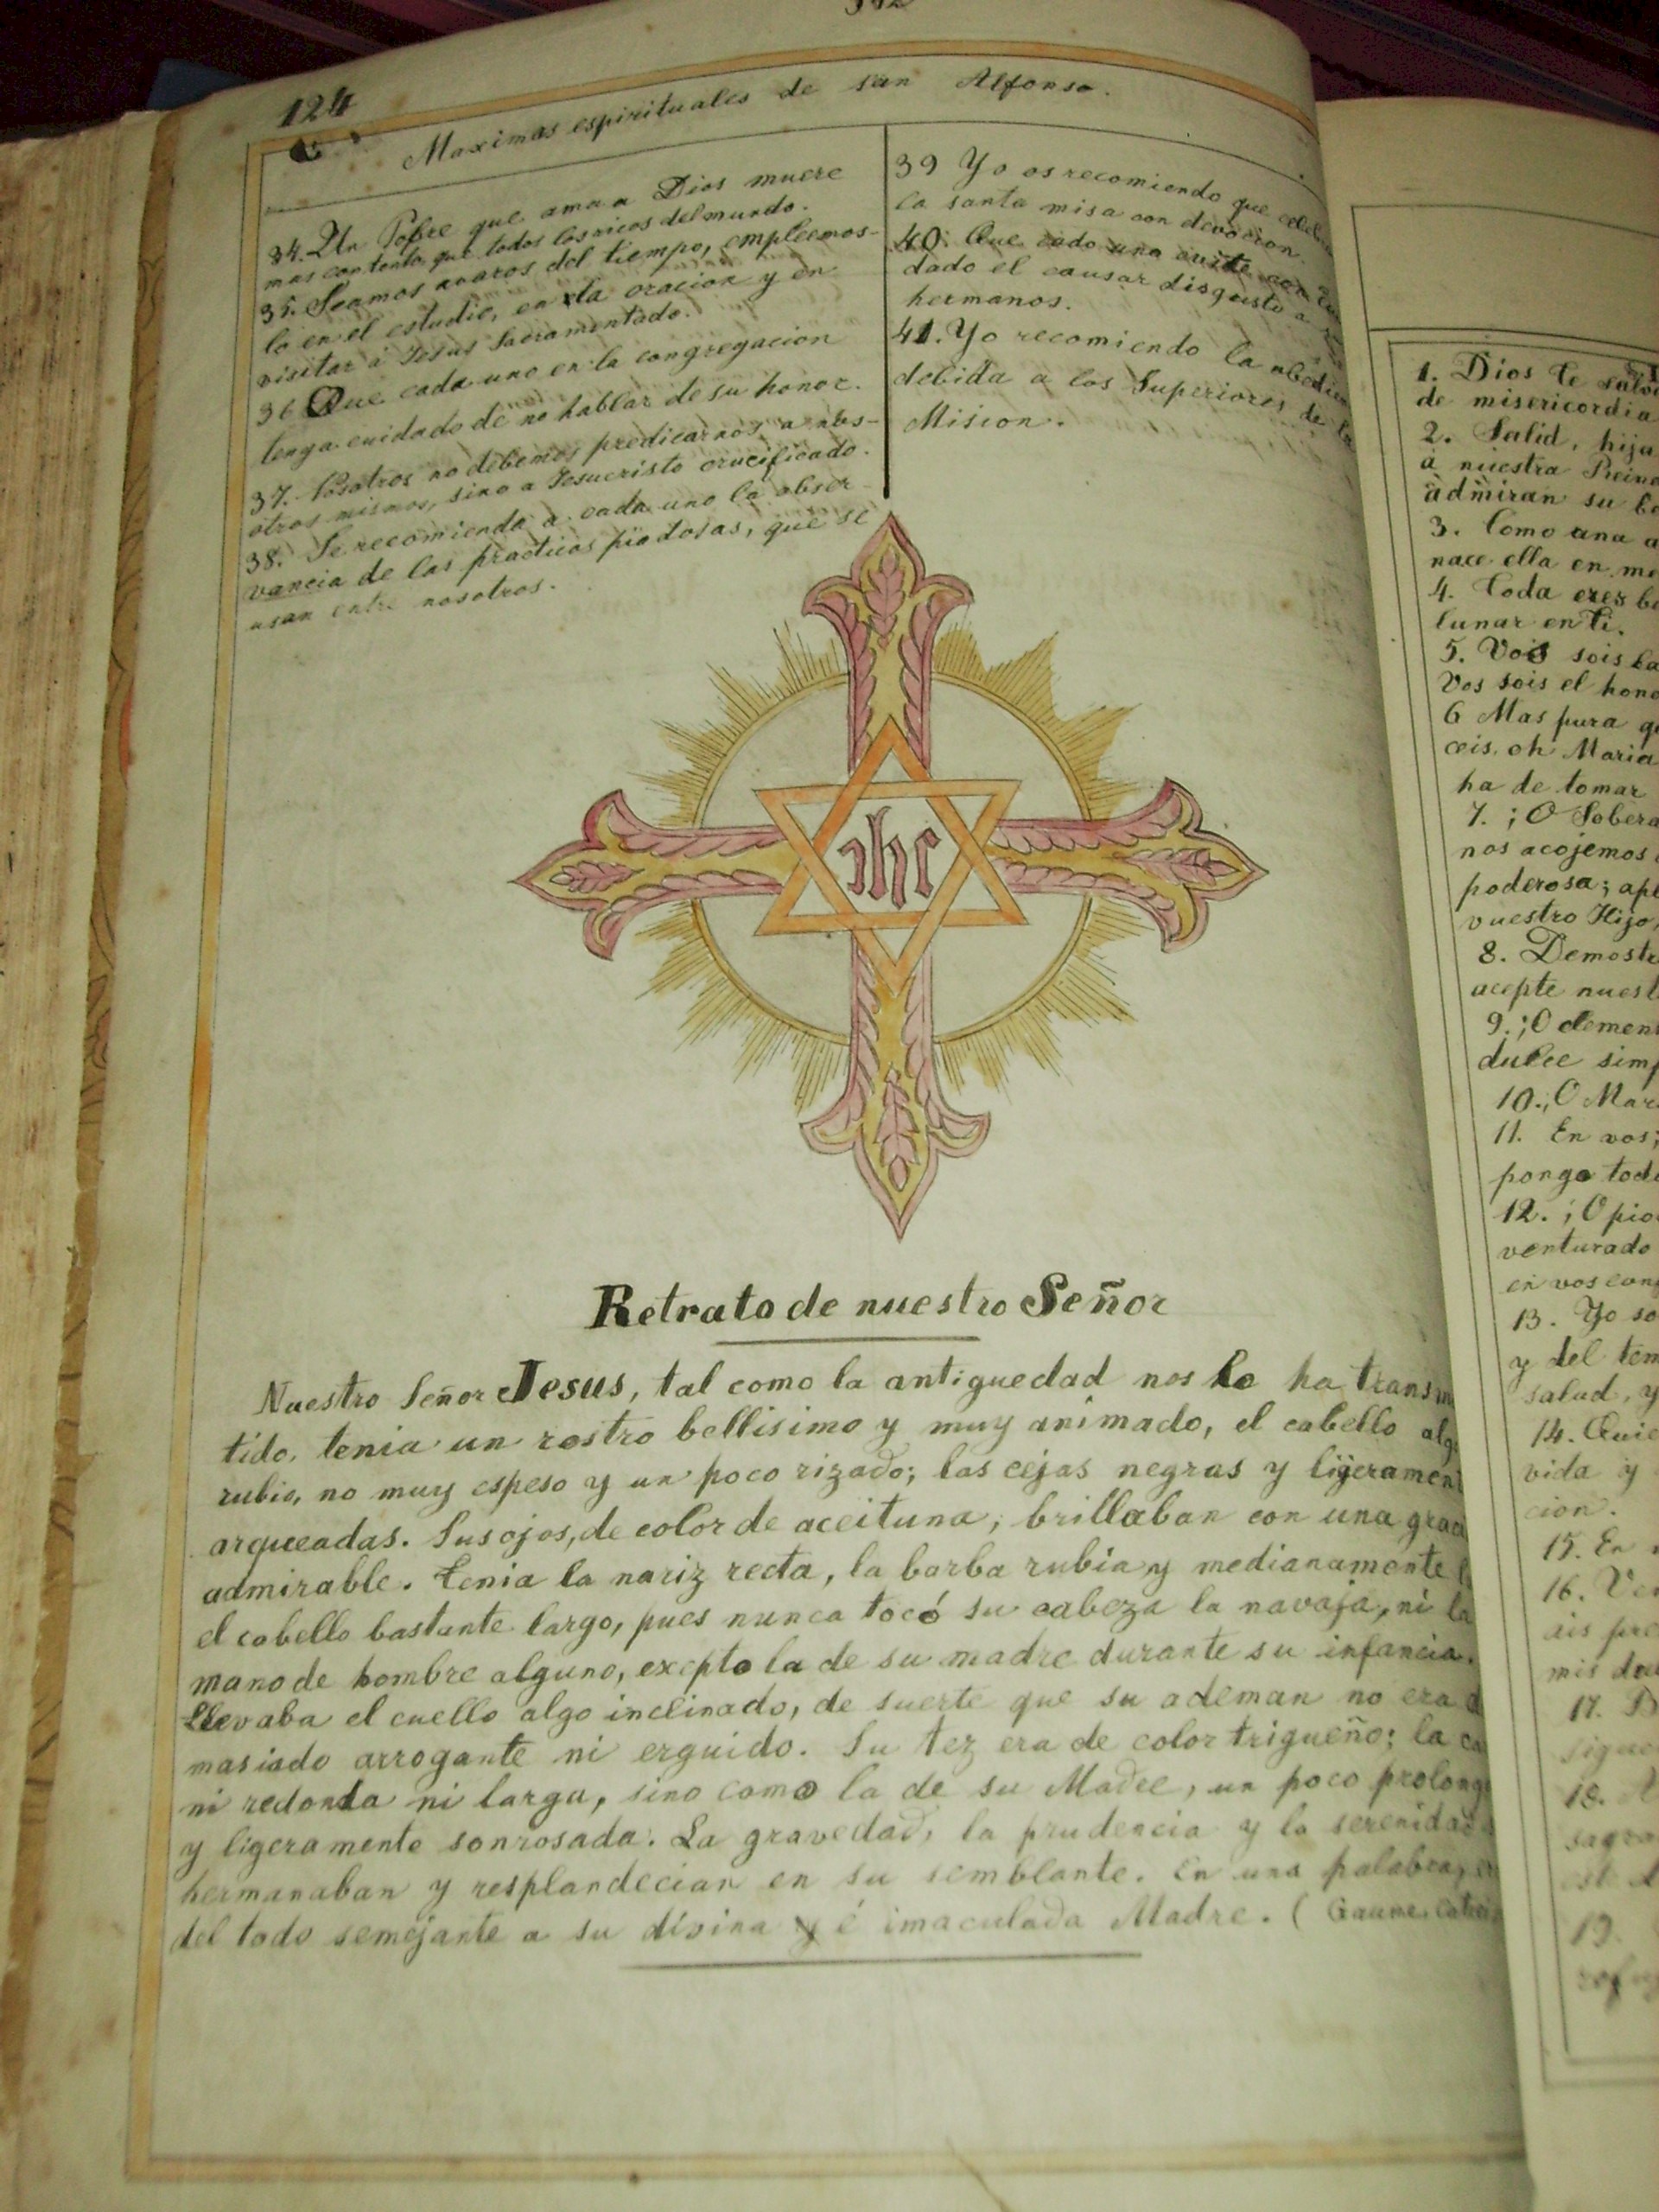 124
Maximas espirituales de san Alfonso.
34. Un Pobre que ama a Dios muere
mas contento que todos los ricos del mundo.
35. Seamos avaros del tiempo, empleemos-
lo en el estudio, en la oracion y en
visitar á Jesus Sacramentado.
36 Que cada uno en la congregacion
tenga cuidado de no hablar de su honor.
37. Nosotros no debemos predicarnos a nos-
otros mismos, sino a Jesucristo crucificado.
38. Se recomienda a cada uno la obser
vancia de las practicas piadosas, que se
usan entre nosotros.
39 Yo os recomiendo que
la santa misa con devocion.
40. Que cada uno evite con
dado el causar disgusto a
hermanos.
41. Yo recomiendo la
debida a los Superiores de la
Mision.
ihc
Retrato de nuestro Señor
Nuestro Señor Jesus, tal como la antiguedad nos lo ha transm
tido, tenia un rostro bellisimo y muy animado, el cabello alg
rubio, no muy espeso y un poco rizado; las cejas negras y lijerament
arqueadas. Sus ojos, de color de aceituna, brillaban con una graci
admirable. Tenia la nariz recta, la barba rubia y medianamente
el cabello bastante largo, pues nunca tocó su cabeza la navaja, ni la
mano de hombre alguno, exepto la de su madre durante su infancia.
Llevaba el cuello algo inclinado, de suerte que su ademan no era d
masiado arrogante ni erguido. Su tez era de color trigueño; la ca
ni redonda ni larga, sino como la de su Madre, un poco prolong
y ligeramente sonrosada. La gravedad, la prudencia y la serenidad
hermanaban y resplandecian en su semblante. En una palabra,
del todo semejante a su divina y é imaculada Madre. (Gaume.
1. Dios te salve
de misericordia
2. Salid, hija
á nuestra Reina
admiran su be
3. Como una a
nace ella en me
4. Toda eres be
lunar en ti.
5. Vos sois la
Vos sois el hono
6 Mas pura q
ceis, oh Maria
ha de tomar
7. ¡O Sobera
nos acojemos
poderosa; ap
vuestro Hijo,
8. Demostr
acepte nuest
9. ¡O clemen
dulce simp
10. ¡O Mar
11. En vos;
pongo tod
12. ¡O pio
venturado
en vos con
13. Yo so
y del tem
salud, y
14. Quie
vida y
cion.
15. En
16. Ve
ais pre
mis
17.
sigue
18.
sagra
19.